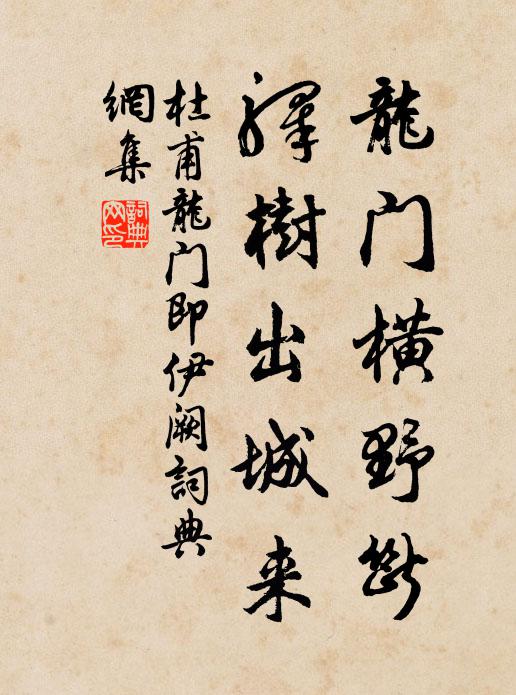 龍门横野斷
驛樹出城来
杜甫龍门即伊阙詞典
網集
詞典网印